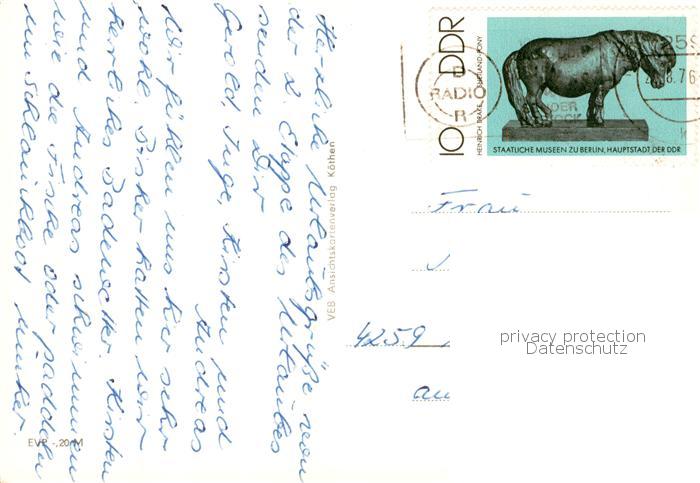 Herzliche Urlaubsgrüße von
der 2. Etappe des Urlaubes
senden Dir
Gerold, Inge, Kirsten und
Andreas
Wir fühlen uns hier sehr
wohl. Bisher hatten wir
herrliches Badewetter. Kirsten
und Andreas schwimmen
wie die Fische oder paddeln
im Schlauchboot umher.
EVP -,20 M
VEB Ansichtskartenverlag Köthen
10 DDR
HEINRICH DRAKE, SHETLAND-PONY
STAATLICHE MUSEEN ZU BERLIN, HAUPTSTADT DER DDR
RADIO
Frau
4259
privacy protection
Datenschutz